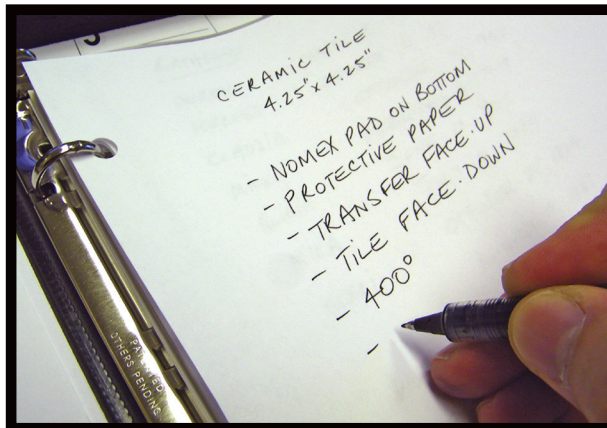 CERAMIC TILE
4.25" x 4.25"
- NOMEX PAD ON BOTTOM
- PROTECTIVE PAPER
- TRANSFER FACE-UP
- TILE FACE-DOWN
- 400°
-
PATENTED
OTHERS PENDING
5